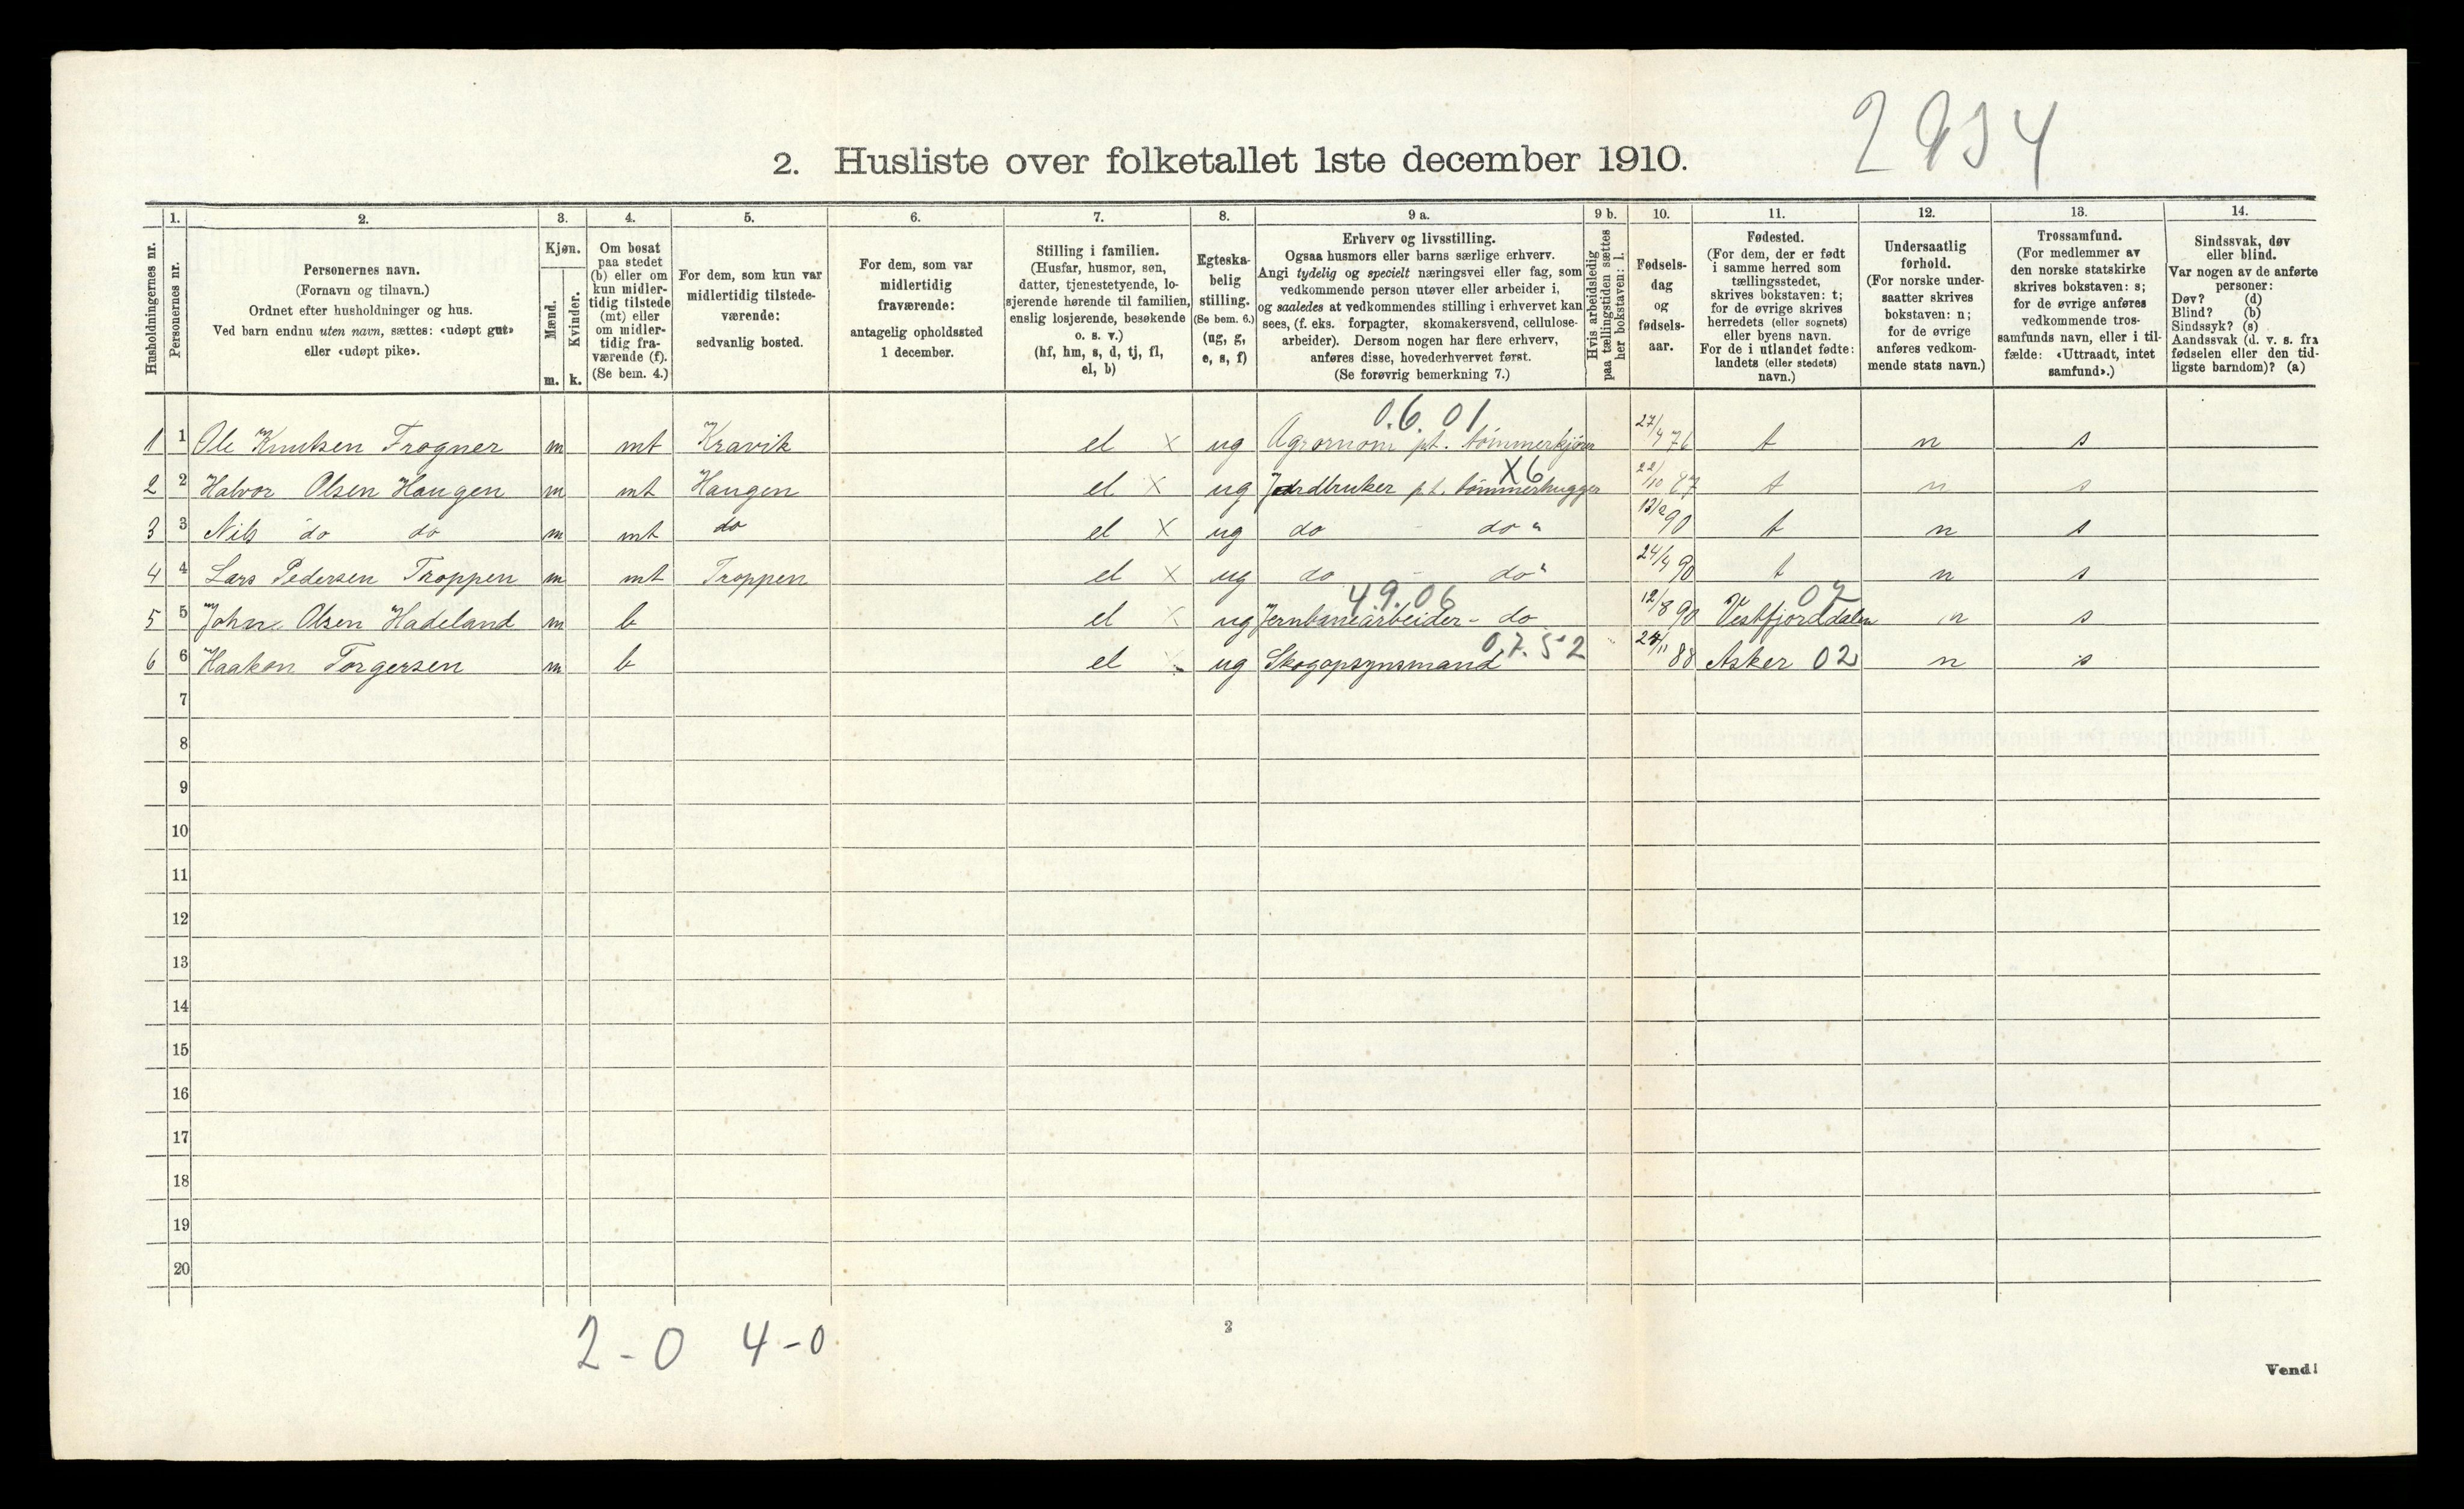 2934
2. Husliste over folketallet 1ste december 1910.
Husholdningernes nr.
1. Personernes nr.
2. Personernes navn. (Fornavn og tilnavn.) Ordnet efter husholdninger og hus. Ved barn endnu uten navn, sættes: «udøpt gut» eller «udøpt pike».
3. Kjøn. Mænd. m. Kvinder. k.
4. Om bosat paa stedet (b) eller om kun midlertidig tilstede (mt) eller om midlertidig fraværende (f). (Se bem. 4.)
5. For dem, som kun var midlertidig tilstedeværende: sedvanlig bosted.
6. For dem, som var midlertidig fraværende: antagelig opholdssted 1 december.
7. Stilling i familien. (Husfar, husmor, søn, datter, tjenestetyende, losjerende hørende til familien, enslig losjerende, besøkende o. s. v.) (hf, hm, s, d, tj, fl, el, b)
8. Egteskabelig stilling. (Se bem. 6.) (ug, g, e, s, f)
9 a. Erhverv og livsstilling. Ogsaa husmors eller barns særlige erhverv. Angi tydelig og specielt næringsvei eller fag, som vedkommende person utøver eller arbeider i, og saaledes at vedkommendes stilling i erhvervet kan sees, (f. eks. forpagter, skomakersvend, cellulosearbeider). Dersom nogen har flere erhverv, anføres disse, hovederhvervet først. (Se forøvrig bemerkning 7.)
9 b. Hvis arbeidsledig paa tællingstiden sættes her bokstaven: l.
10. Fødselsdag og fødselsaar.
11. Fødested. (For dem, der er født i samme herred som tællingsstedet, skrives bokstaven: t; for de øvrige skrives herredets (eller sognets) eller byens navn. For de i utlandet fødte: landets (eller stedets) navn.)
12. Undersaatlig forhold. (For norske undersaatter skrives bokstaven: n; for de øvrige anføres vedkommende stats navn.)
13. Trossamfund. (For medlemmer av den norske statskirke skrives bokstaven: s; for de øvrige anføres vedkommende trossamfunds navn, eller i tilfælde: «Uttraadt, intet samfund».)
14. Sindssvak, døv eller blind. Var nogen av de anførte personer: Døv? (d) Blind? (b) Sindssyk? (s) Aandssvak (d. v. s. fra fødselen eller den tidligste barndom)? (a)
0.6.01
1 1 Ole Knutsen Frogner m mt Kravik el x ug Agronom pt. tømmerkjører 27/4 76 t n s
X6
2 2 Halvor Olsen Haugen m mt Haugen el x ug Jordbruker p.t. tømmerhugger 22/10 87 t n s
3 3 Nils do do m mt do el x ug do - do " 13/2 90 t n s
4 4 Lars Pedersen Troppen m mt Troppen el x ug do - do " 24/4 90 t n s
4.9.06 07
5 5 John Olsen Hadeland m b el x ug Jernbanearbeider - do 12/8 90 Vestfjorddalen n s
07.52
6 6 Haakon Torgersen m b el x ug Skogopsynsmand 24/11 88 Asker 02 n s
7
8
9
10
11
12
13
14
15
16
17
18
19
20
2-0 4-0
2
Vend!